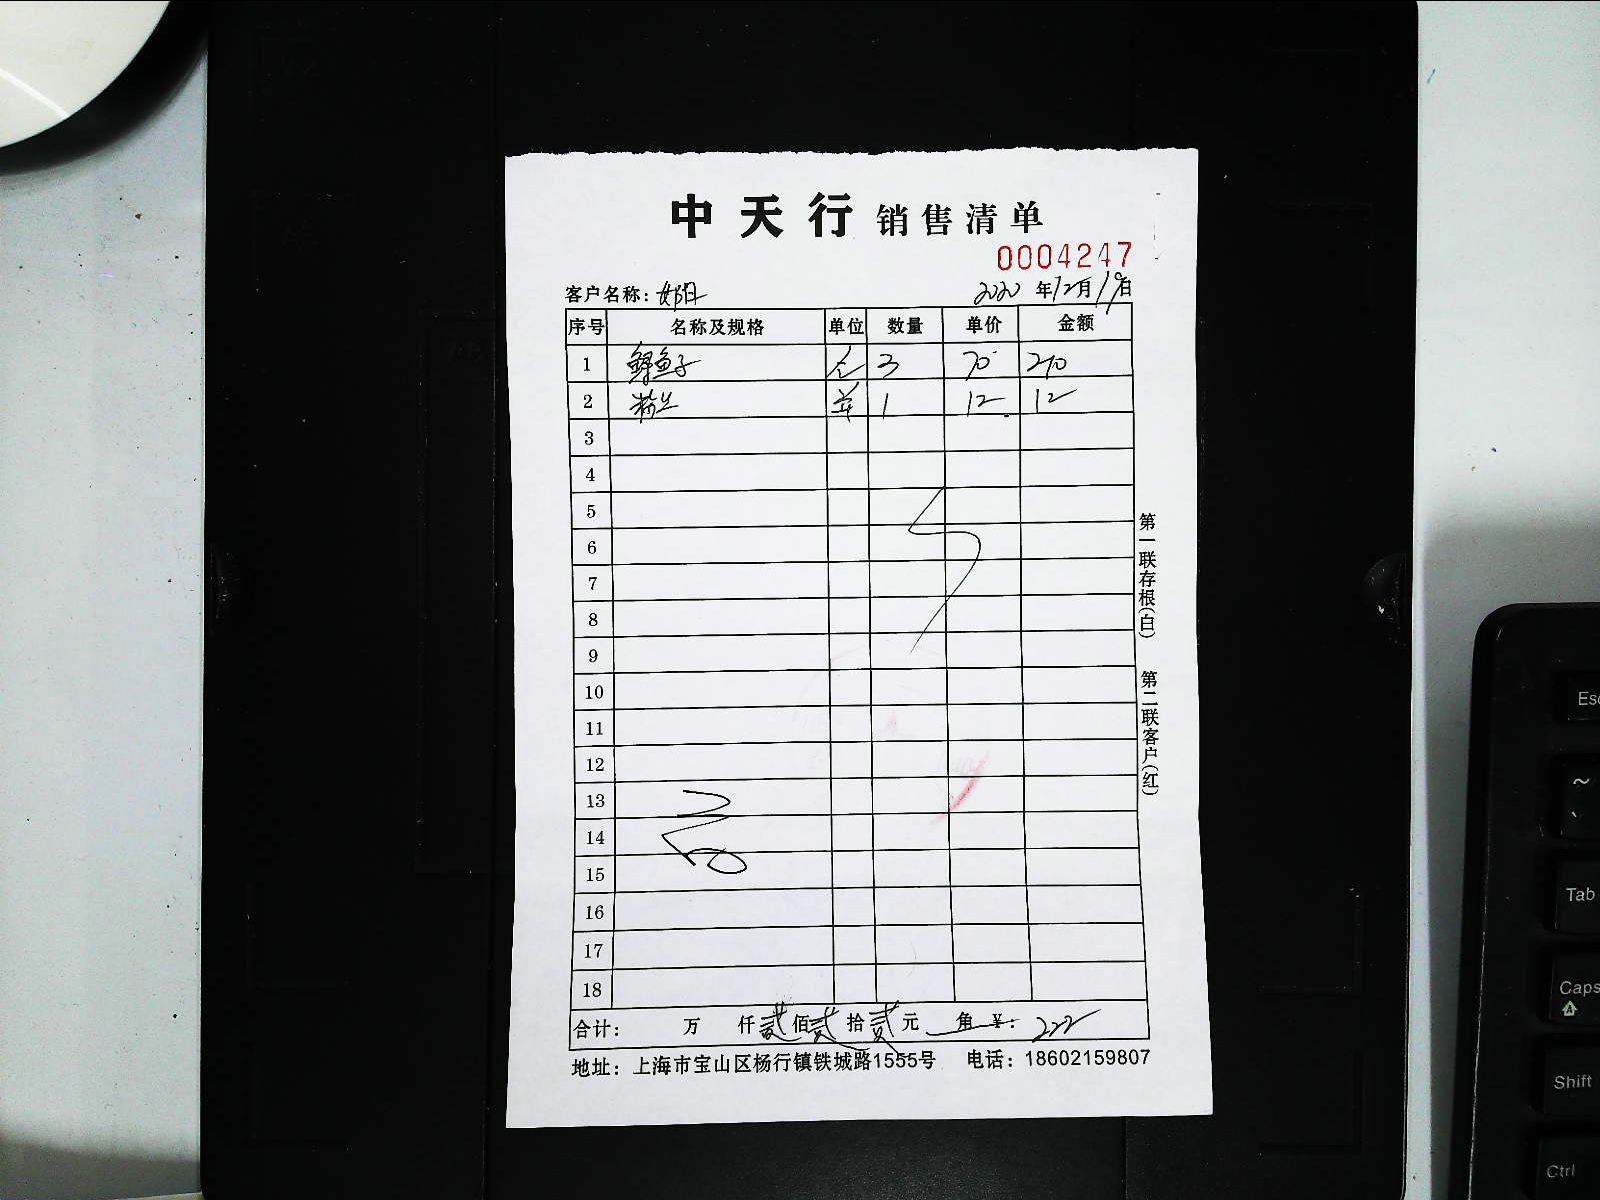 中天行 销售清单
0004247
客户名称： 2020 年12月19日
序号 名称及规格 单位 数量 单价 金额
1 鲜鱼子 3 70 210
2 粉丝 1 12 12
3
4
5
6
7
8
9
10
11
12
13
14
15
16
17
18
合计： 万 仟贰佰贰拾贰元 角 ¥：222
地址：上海市宝山区杨行镇铁城路1555号 电话：18602159807
第一联存根(白)
第二联客户(红)
Esc
~
Tab
Caps
Shift
Ctrl